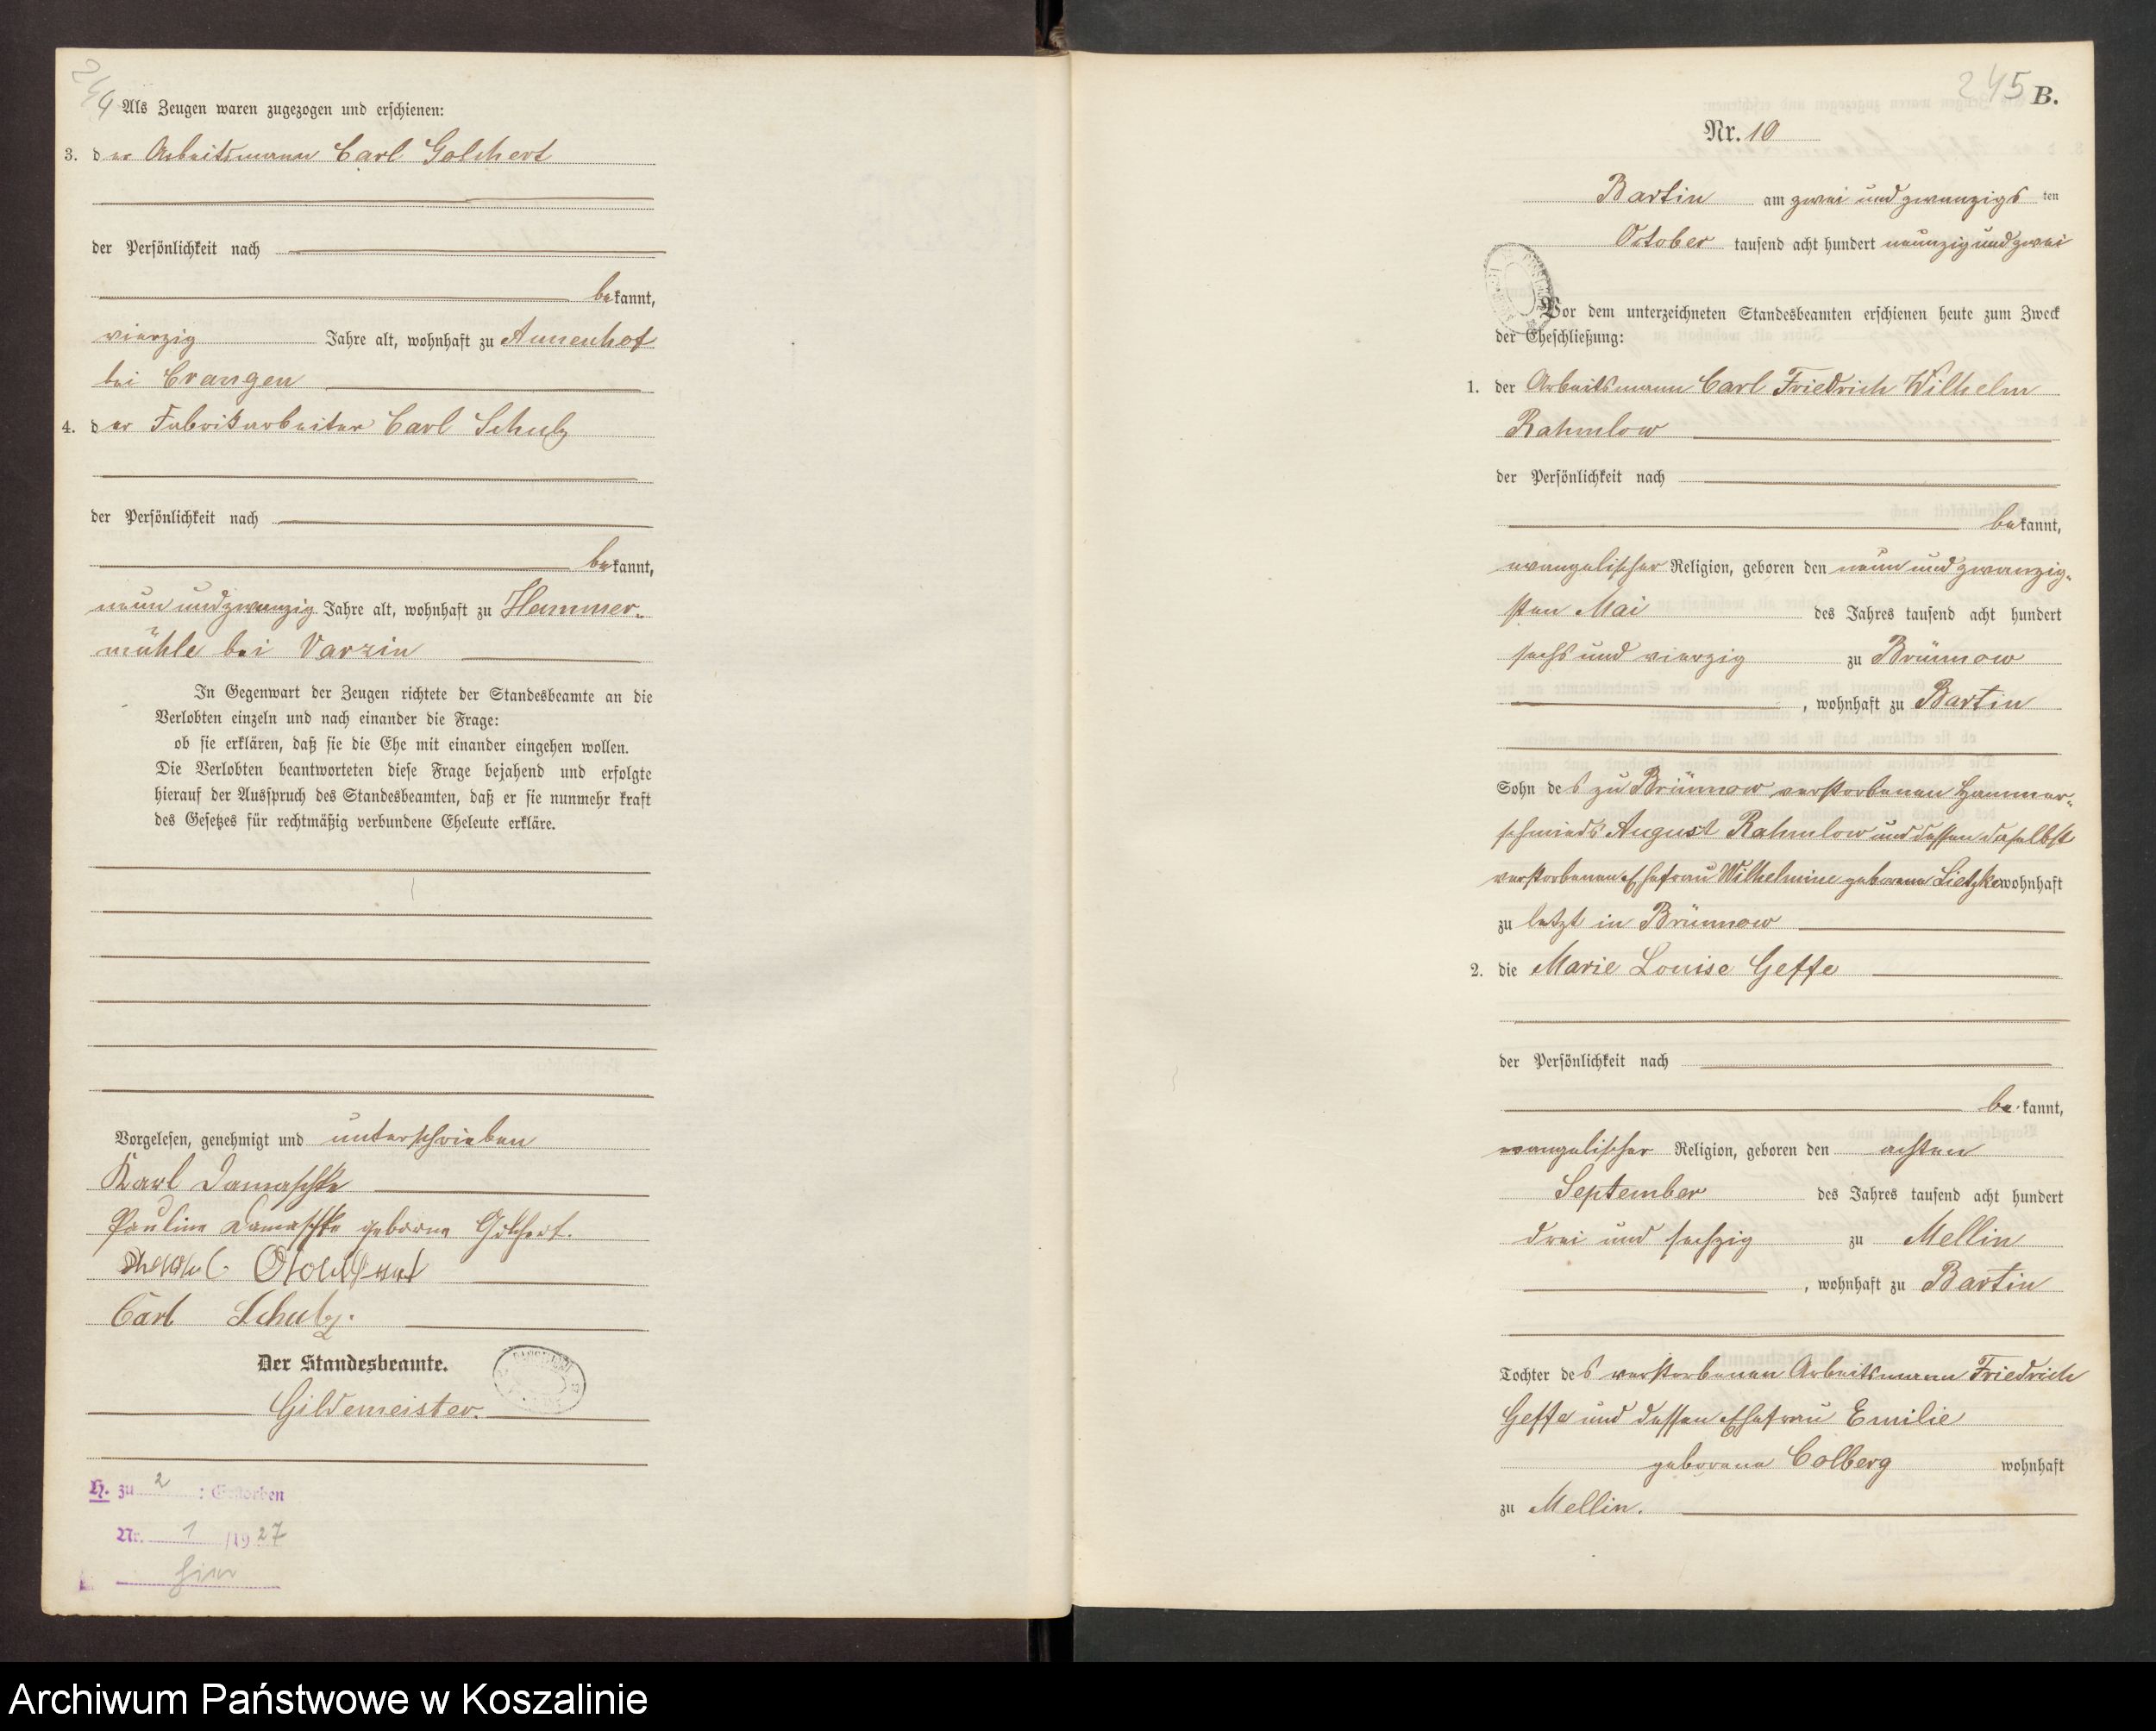 244
Als Zeugen waren zugezogen und erschienen:
3. der Arbeitsmann Carl Golchert
der Persönlichkeit nach
bekannt,
vierzig Jahre alt, wohnhaft zu Annenhof
bei Crangen
4. der Fabrikarbeiter Carl Schulz
der Persönlichkeit nach
bekannt,
neun und zwanzig Jahre alt, wohnhaft zu Hammer-
mühle bei Varzin
In Gegenwart der Zeugen richtete der Standesbeamte an die
Verlobten einzeln und nach einander die Frage:
ob sie erklären, daß sie die Ehe mit einander eingehen wollen.
Die Verlobten beantworteten diese Frage bejahend und erfolgte
hierauf der Ausspruch des Standesbeamten, daß er sie nunmehr kraft
des Gesetzes für rechtmäßig verbundene Eheleute erkläre.
Vorgelesen, genehmigt und unterschrieben
Karl Damaschke
Pauline Damaschke geborne Golchert.
Carl Schulz.
Der Standesbeamte.
Gildemeister.
H. zu 2 : Gestorben
Nr. 1 /1927
hier
245 B.
Nr. 10
Bartin am zwei und zwanzigsten
October tausend acht hundert neunzig und zwei
Vor dem unterzeichneten Standesbeamten erschienen heute zum Zweck
der Eheschließung:
1. der Arbeitsmann Carl Friedrich Wilhelm
Rahmlow
der Persönlichkeit nach
bekannt,
evangelischer Religion, geboren den neun und zwanzig-
sten Mai des Jahres tausend acht hundert
sechs und vierzig zu Brünnow
, wohnhaft zu Bartin
Sohn des zu Brünnow verstorbenen Hammer-
schmieds August Rahmlow und dessen daselbst
verstorbenen Ehefrau Wilhelmine geborene Lietzke wohnhaft
zu letzt in Brünnow
2. die Marie Louise Geffe
der Persönlichkeit nach
bekannt,
evangelischer Religion, geboren den achten
September des Jahres tausend acht hundert
drei und sechzig zu Mellin
, wohnhaft zu Bartin
Tochter des verstorbenen Arbeitsmann Friedrich
Geffe und dessen Ehefrau Emilie
geborene Colberg wohnhaft
zu Mellin.
Archiwum Państwowe w Koszalinie